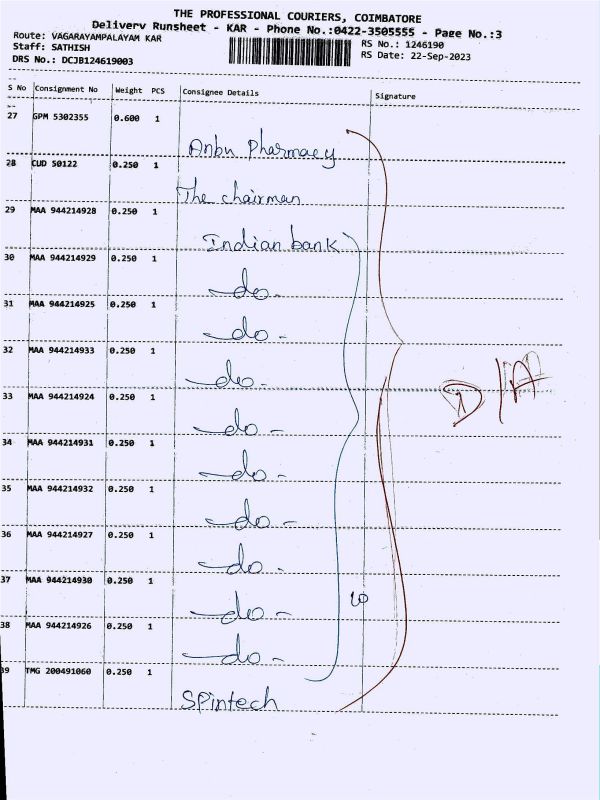 THE PROFESSIONAL COURIERS, COIMBATORE
Delivery Runsheet - KAR - Phone No.:0422-3505555 - Page No.:3
Route: VAGARAYAMPALAYAM KAR
RS No.: 1246190
Staff: SATHISH
RS Date: 22-Sep-2023
DRS No.: DCJB124619003
S No Consignment No Weight PCS Consignee Details Signature
27 GPM 5302355 0.600 1
Anbu Pharmacy
28 CUD 50122 0.250 1
The chairman
29 MAA 944214928 0.250 1
Indian bank
30 MAA 944214929 0.250 1
-do-
31 MAA 944214925 0.250 1
-do-
32 MAA 944214933 0.250 1
-do-
33 MAA 944214924 0.250 1
-do-
34 MAA 944214931 0.250 1
-do-
35 MAA 944214932 0.250 1
-do-
36 MAA 944214927 0.250 1
-do-
37 MAA 944214930 0.250 1
-do-
38 MAA 944214926 0.250 1
-do-
39 TMG 200491060 0.250 1
SPintech